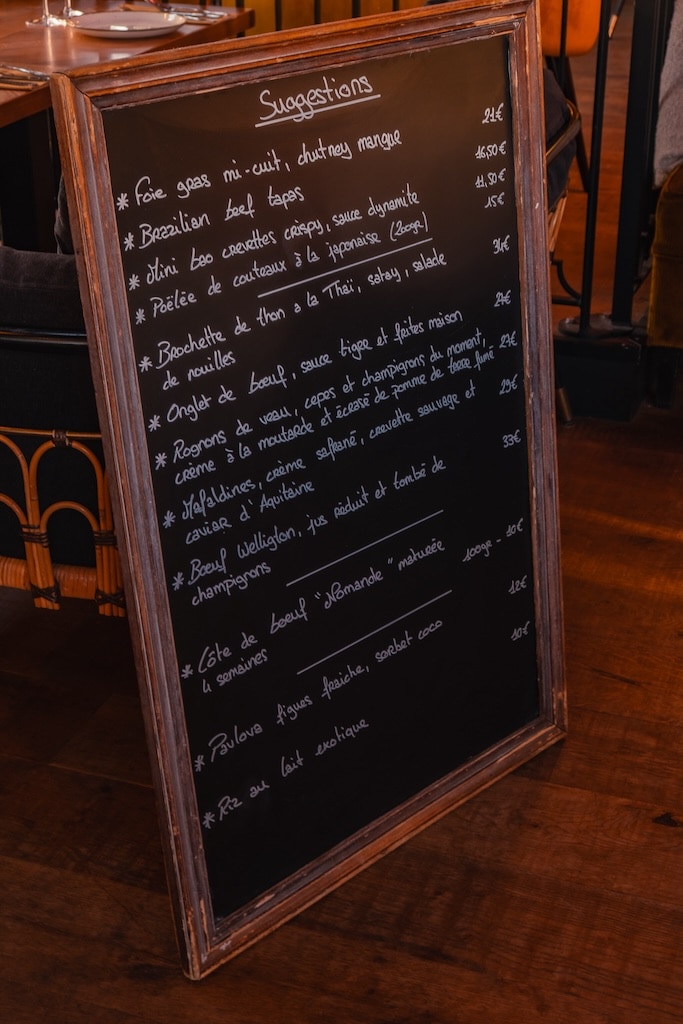 Suggestions
* Foie gras mi-cuit, chutney mangue 21€
* Brazilian beef tapas 16,50€
* Mini bao crevettes crispy, sauce dynamite 11,50€
* Poëlée de couteaux à la japonaise (200gr) 15€
* Brochette de thon a la Thaï, satay, salade 34€
de nouilles
* Onglet de bœuf, sauce tigre et frites maison 27€
* Rognons de veau, cepes et champignons du moment, 27€
crème à la moutarde et écrasé de pomme de terre fumé
* Mafaldines, crème safrané, crevette sauvage et 29€
caviar d'Aquitaine
* Bœuf Wellington, jus réduit et tombé de 33€
champignons
* Côte de bœuf "Normande" maturée 100gr - 10€
4 semaines
* Pavlova figues fraîche, sorbet coco 10€
* Riz au lait exotique 10€